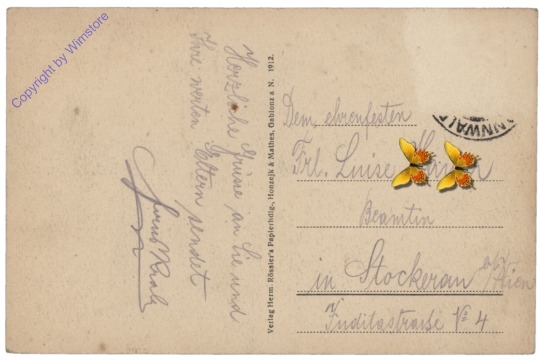 Copyright by Wimstore
Herzliche Grüsse an Sie und
Ihre werten Eltern sendet
Verlag Herm. Rössler's Papierhdlg., Honzejk & Mathes, Gablonz a N. 1912.
NNWAL
Dem ehrenfesten
Frl. Luise
Beamtin
in Stockerau
Wien
№ 4